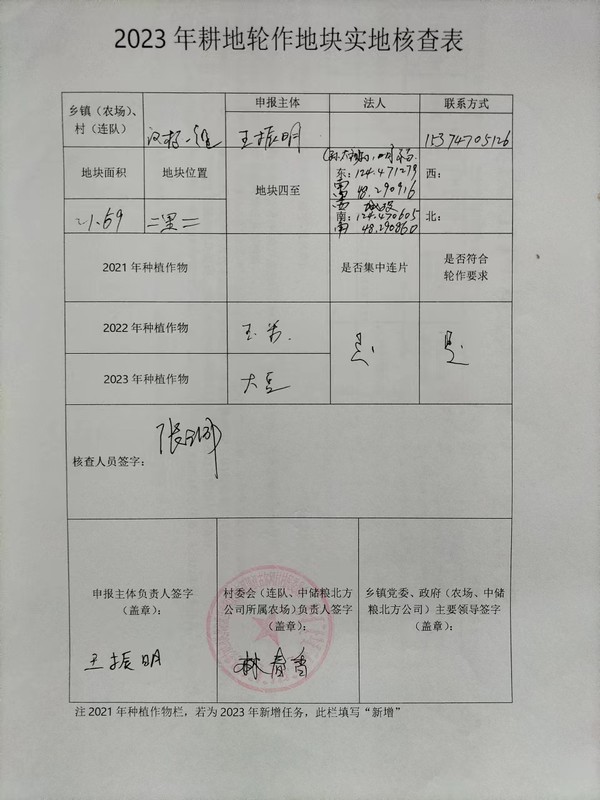 2023年耕地轮作地块实地核查表
乡镇（农场）、
村（连队）
申报主体
法人
联系方式
王振明
15374705126
地块面积
地块位置
地块四至
东：124.471279
48.290916
西：
南：124.470605
48.290860
北：
21.69
二里二
2021年种植作物
是否集中连片
是否符合
轮作要求
2022年种植作物
玉米.
是
是
2023年种植作物
大豆
核查人员签字：
申报主体负责人签字
（盖章）：
王振明
村委会（连队、中储粮北方
公司所属农场）负责人签字
（盖章）：
林春香
乡镇党委、政府（农场、中储
粮北方公司）主要领导签字
（盖章）：
注 2021年种植作物栏，若为2023年新增任务，此栏填写“新增”